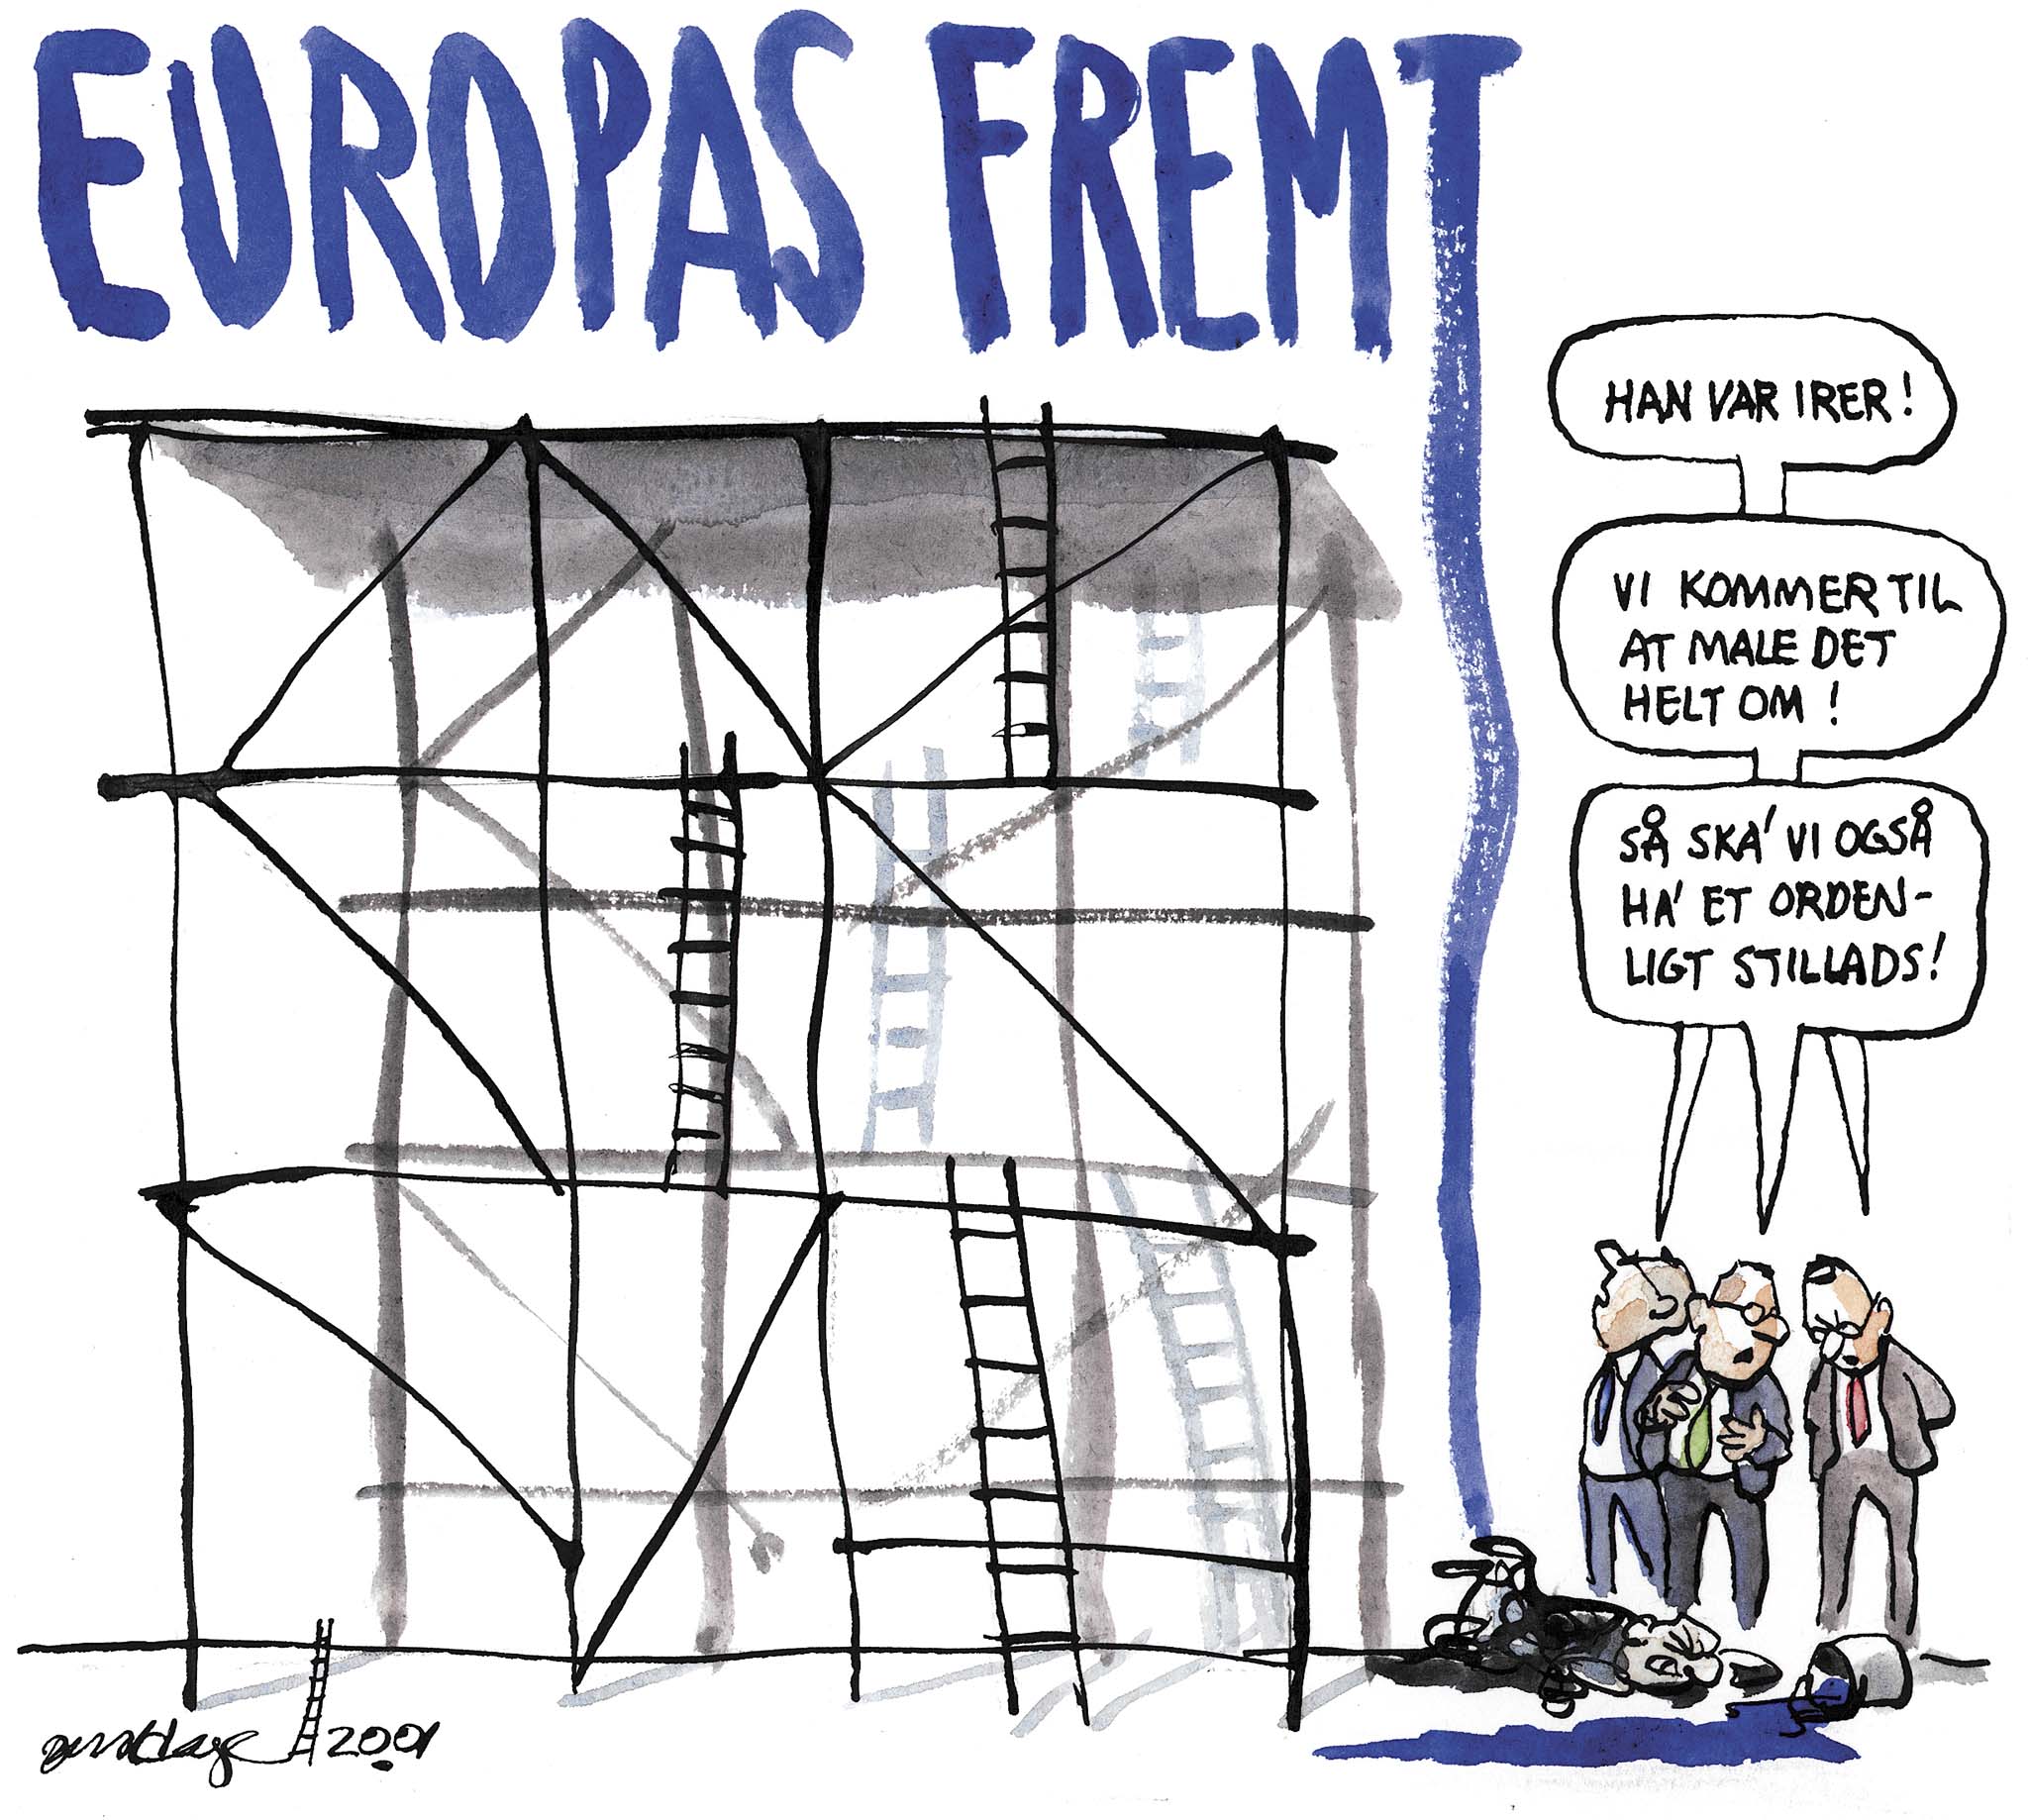 EUROPAS FREMT
HAN VAR IRER!
VI KOMMER TIL
AT MALE DET
HELT OM!
SÅ SKA' VI OGSÅ
HA' ET ORDEN-
LIGT STILLADS!
2001